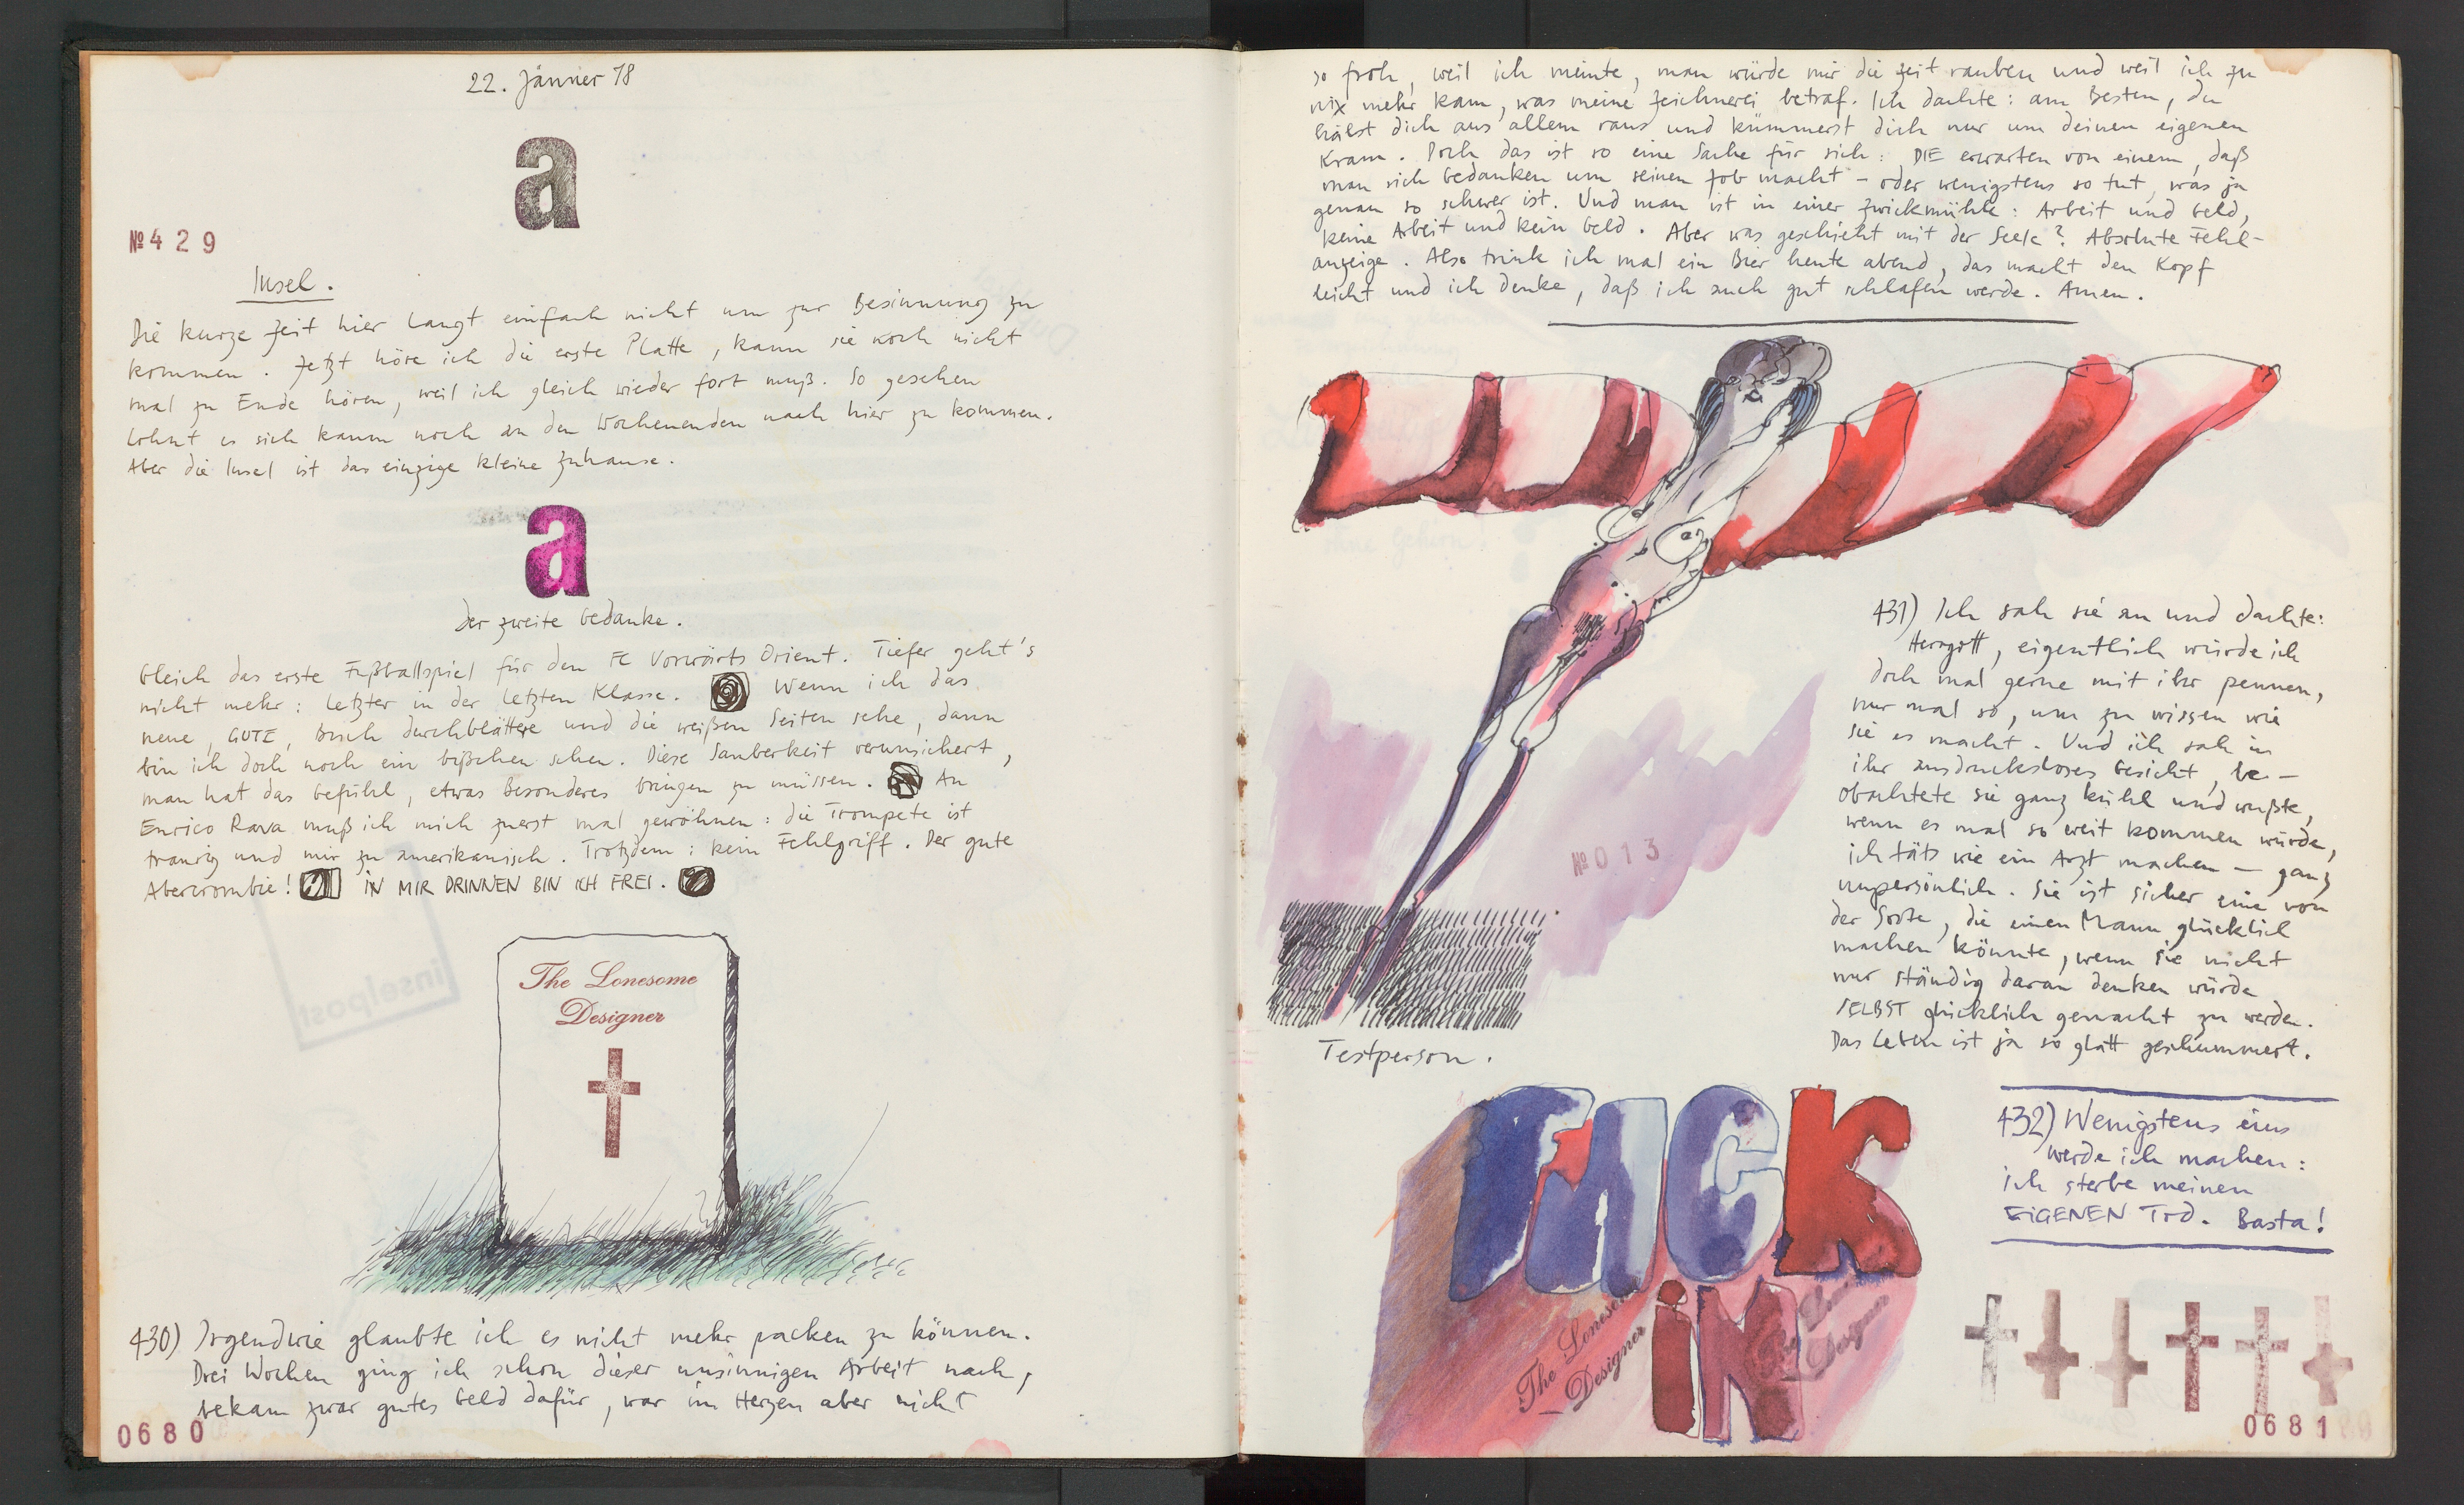 22. Jänner 78
a
№ 429
Insel.
Die kurze Zeit hier langt einfach nicht um zur Besinnung zu
kommen. Jetzt höre ich die erste Platte, kann sie noch nicht
mal zu Ende hören, weil ich gleich wieder fort muß. So gesehen
lohnt es sich kaum noch an den Wochenenden nach hier zu kommen.
Aber die Insel ist das einzige kleine Zuhause.
a
Der zweite Gedanke.
Gleich das erste Fußballspiel für den FC Vorwärts Orient. Tiefer geht's
nicht mehr: Letzter in der letzten Klasse. Wenn ich das
neue, GUTE, Buch durchblättere und die weißen Seiten sehe, dann
bin ich doch noch ein bißchen scheu. Diese Sauberkeit verunsichert,
man hat das Gefühl, etwas Besonderes bringen zu müssen. An
Enrico Rava muß ich mich zuerst mal gewöhnen: die Trompete ist
traurig und mir zu amerikanisch. Trotzdem: kein Fehlgriff. Der gute
Abercrombie! IN MIR DRINNEN BIN ICH FREI.
The Lonesome
Designer
inselpost
430) Irgendwie glaubte ich es nicht mehr packen zu können.
Drei Wochen ging ich schon dieser unsinnigen Arbeit nach,
bekam zwar gutes Geld dafür, war im Herzen aber nicht
0680
so froh, weil ich meinte, man würde mir die Zeit rauben und weil ich zu
nix mehr kam, was meine Zeichnerei betraf. Ich dachte: am Besten, du
hälst dich aus allem raus und kümmerst dich nur um deinen eigenen
Kram. Doch das ist so eine Sache für sich: DIE erwarten von einem, daß
man sich Gedanken um seinen Job macht - oder wenigstens so tut, was ja
genau so schwer ist. Und man ist in einer Zwickmühle: Arbeit und Geld,
keine Arbeit und kein Geld. Aber was geschieht mit der Seele? Absolute Fehl-
anzeige. Also trink ich mal ein Bier heute abend, das macht den Kopf
leicht und ich denke, daß ich auch gut schlafen werde. Amen.
431) Ich sah sie an und dachte:
Herrgott, eigentlich würde ich
doch mal gerne mit ihr pennen,
nur mal so, um zu wissen wie
sie es macht. Und ich sah in
ihr ausdrucksloses Gesicht, be-
obachtete sie ganz kühl und wußte,
wenn es mal so weit kommen würde,
ich täts wie ein Arzt machen - ganz
unpersönlich. Sie ist sicher eine von
der Sorte, die einen Mann glücklich
machen könnte, wenn sie nicht
nur ständig daran denken würde
SELBST glücklich gemacht zu werden.
Das Leben ist ja so glatt gechummert.
№ 013
Testperson.
FUCK
iN
The Lonesome
Designer
The Lonesome
Designer
432) Wenigstens eins
werde ich machen:
ich sterbe meinen
EIGENEN Tod. Basta!
0681